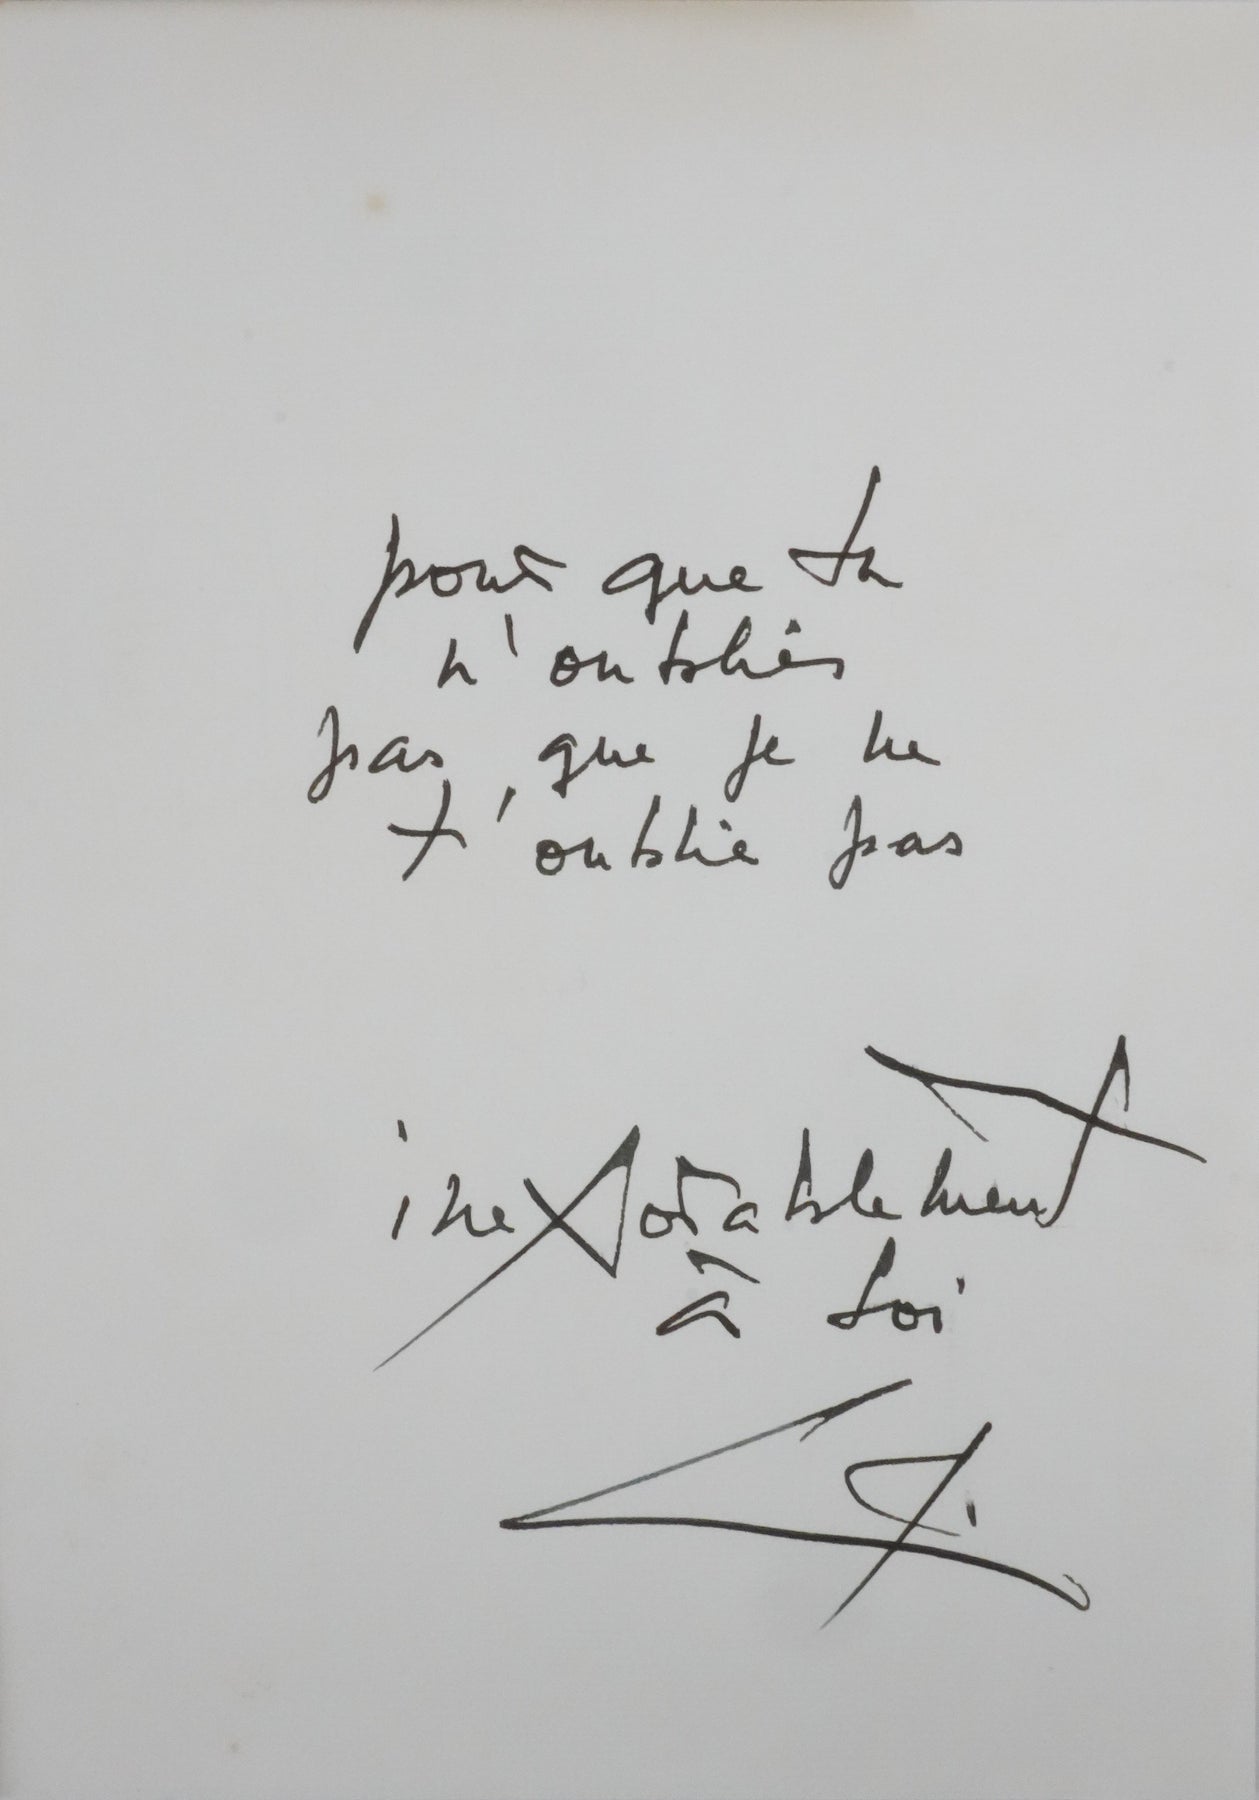 pour que tu
n'oublies
pas, que je ne
t'oublie pas
inexorablement
à toi